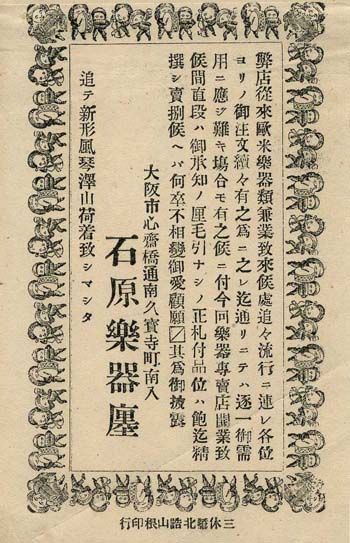 弊店從來歐米樂器類兼業致來候處追々流行ニ連レ各位
ヨリノ御注文續々有之爲ニ之レ迄通リニテハ逐一御需
用ニ應ジ難キ塲合モ有之候ニ付今回樂器專賣店開業致
候間直段ハ御承知ノ厘毛引ナシノ正札付品位ハ飽迄精
撰シ賣捌候ヘバ何卒不相變御愛顧願〼其爲御披露
大阪市心齋橋通南久寳寺町南入
石原樂器廛
追テ新形風琴澤山荷着致シマシタ
三休橋北詰山根印行